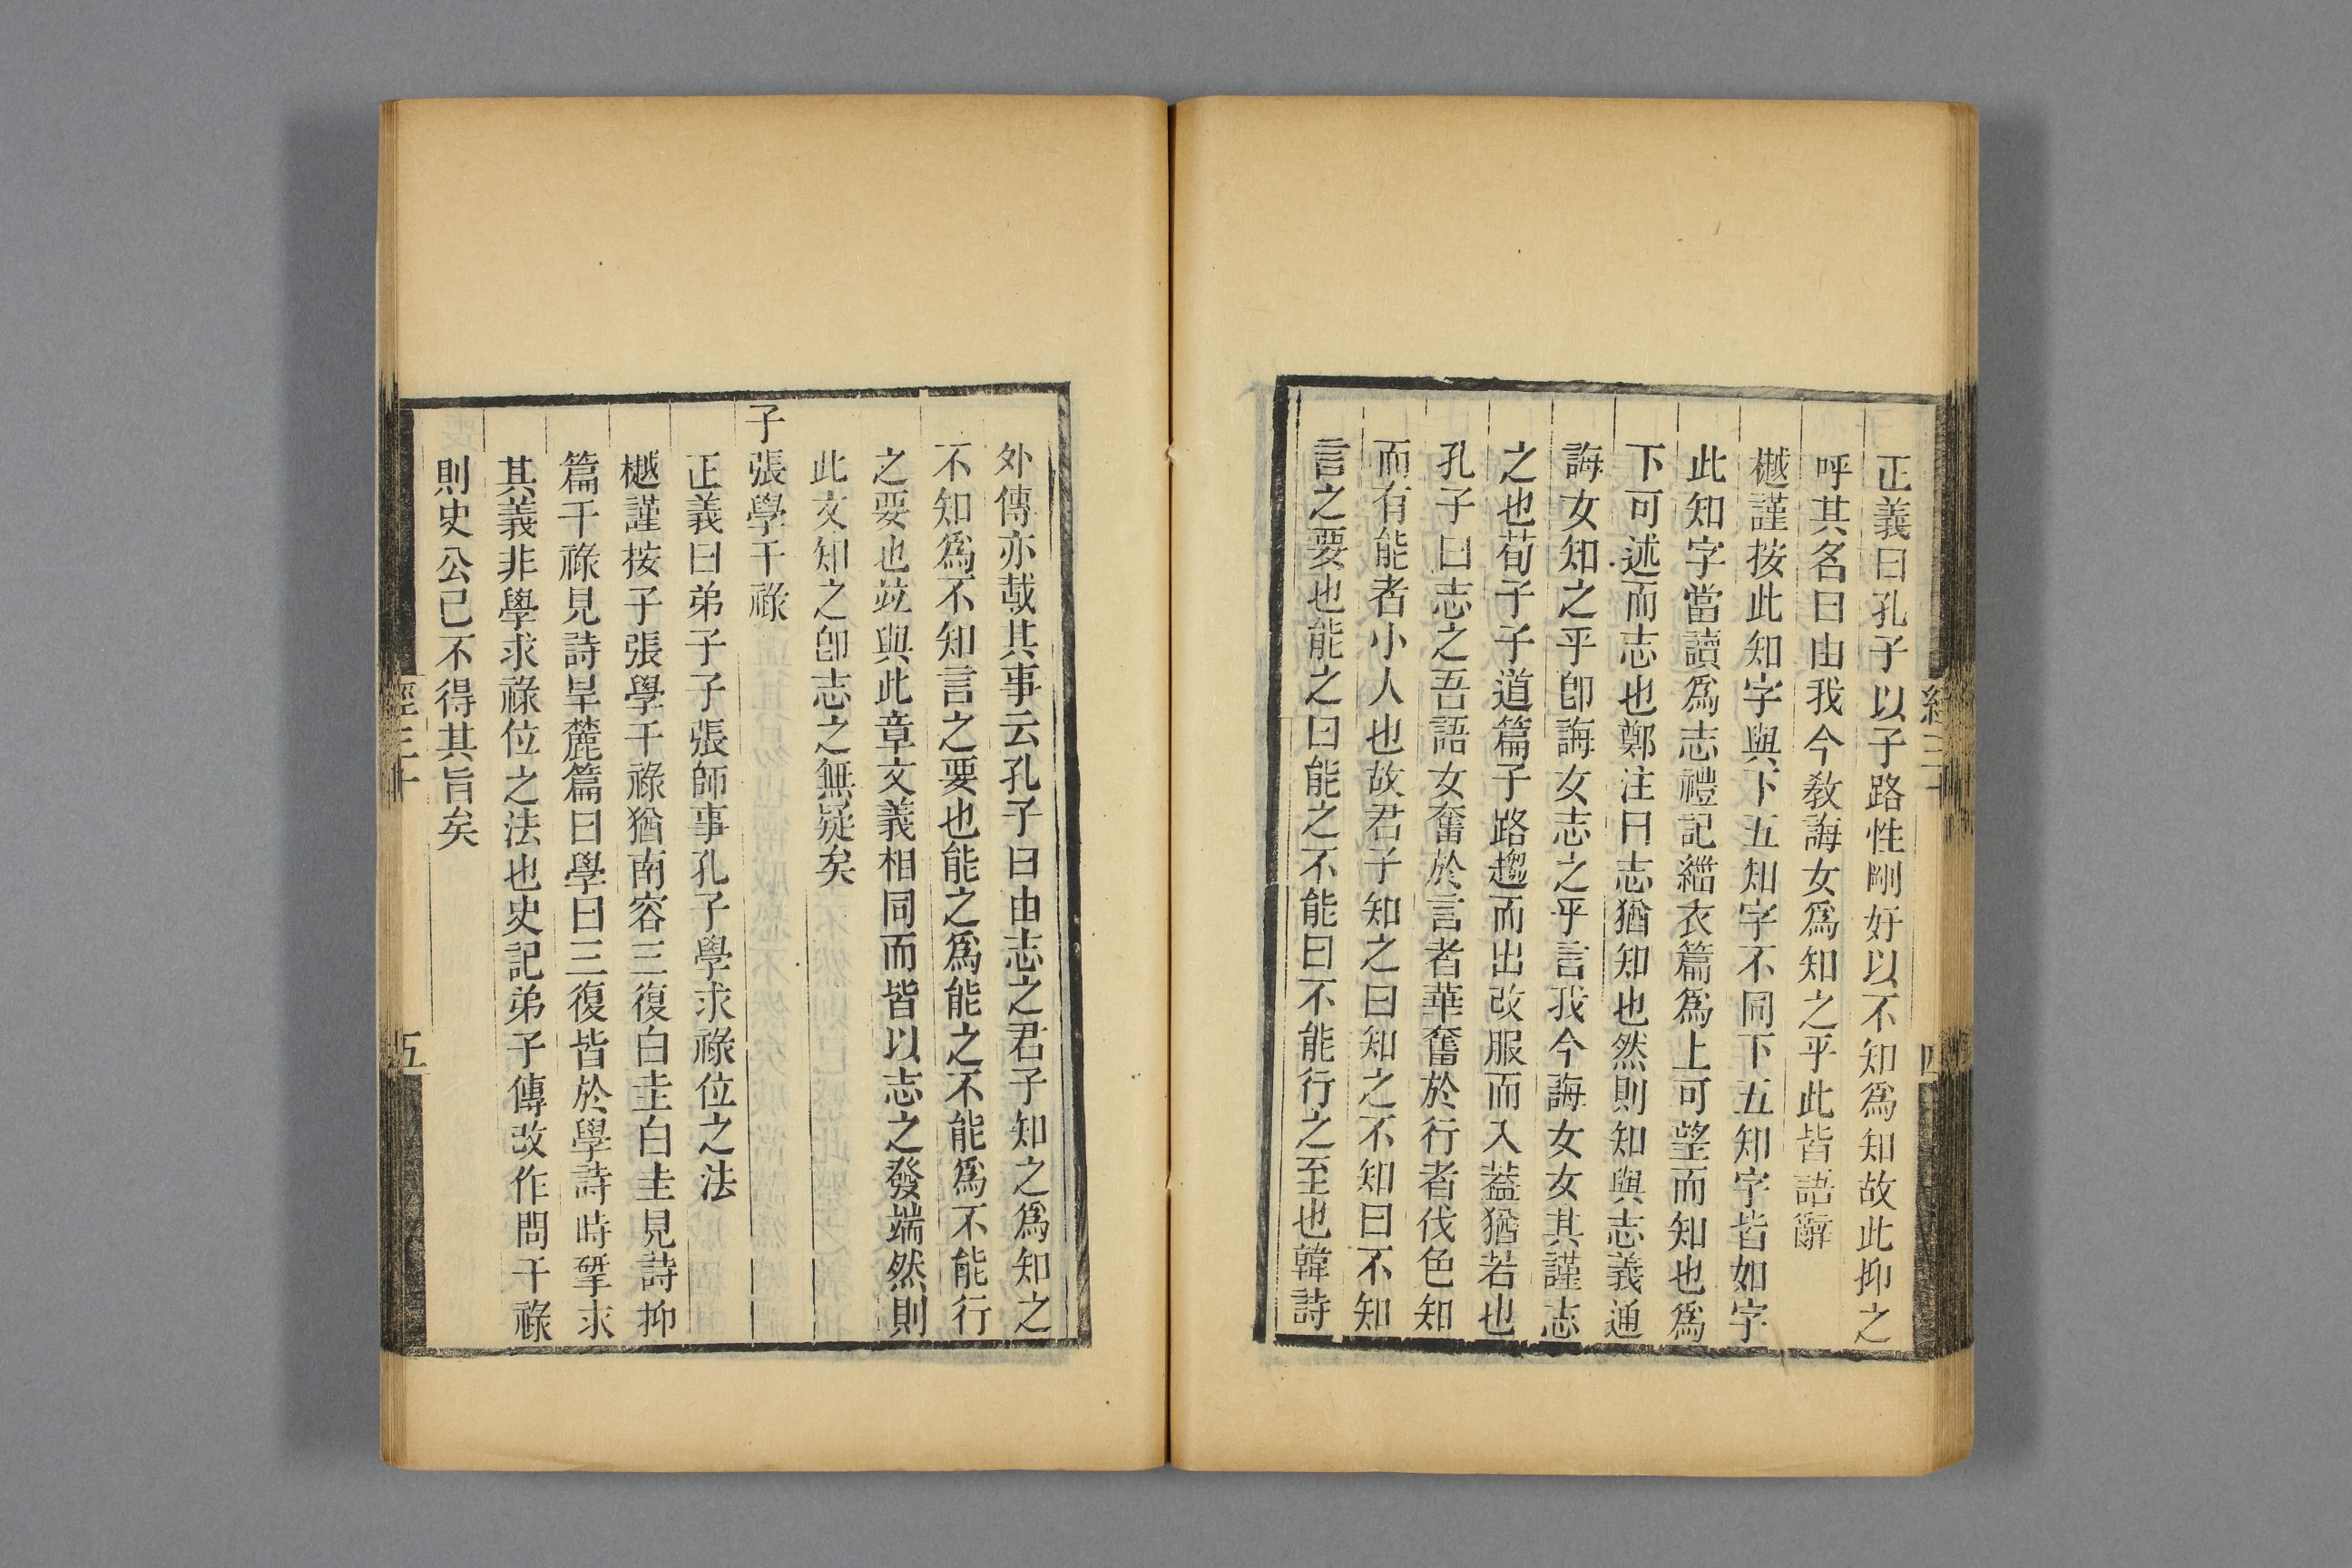 正義曰孔子以子路性剛好以不知爲知故此抑之
呼其名曰由我今敎誨女爲知之乎此皆語辭
樾謹按此知字與下五知字不同下五知字皆如字
此知字當讀爲志禮記緇衣篇爲上可望而知也爲
下可述而志也鄭注曰志猶知也然則知與志義通
誨女知之乎卽誨女志之乎言我今誨女女其謹志
之也荀子子道篇子路趨而出改服而入蓋猶若也
孔子曰志之吾語女奮於言者華奮於行者伐色知
而有能者小人也故君子知之曰知之不知曰不知
言之要也能之曰能之不能曰不能行之至也韓詩
外傳亦載其事云孔子曰由志之君子知之爲知之
不知爲不知言之要也能之爲能之不能爲不能行
之要也竝與此章文義相同而皆以志之發端然則
此文知之卽志之無疑矣
子張學干祿
正義曰弟子子張師事孔子學求祿位之法
樾謹按子張學干祿猶南容三復白圭白圭見詩抑
篇干祿見詩旱麓篇曰學曰三復皆於學詩時硏求
其義非學求祿位之法也史記弟子傳改作問干祿
則史公已不得其旨矣
經三十
五